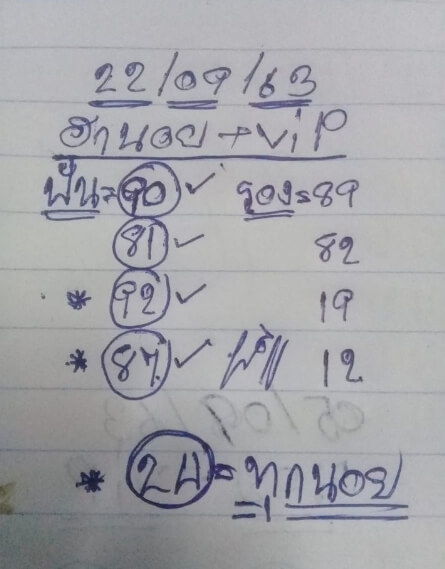 22/09/63
ฮานอย+ViP
ฟัน=90 รอง=89
81 82
* 92 19
* 87 12
* 24=ทุกนอย